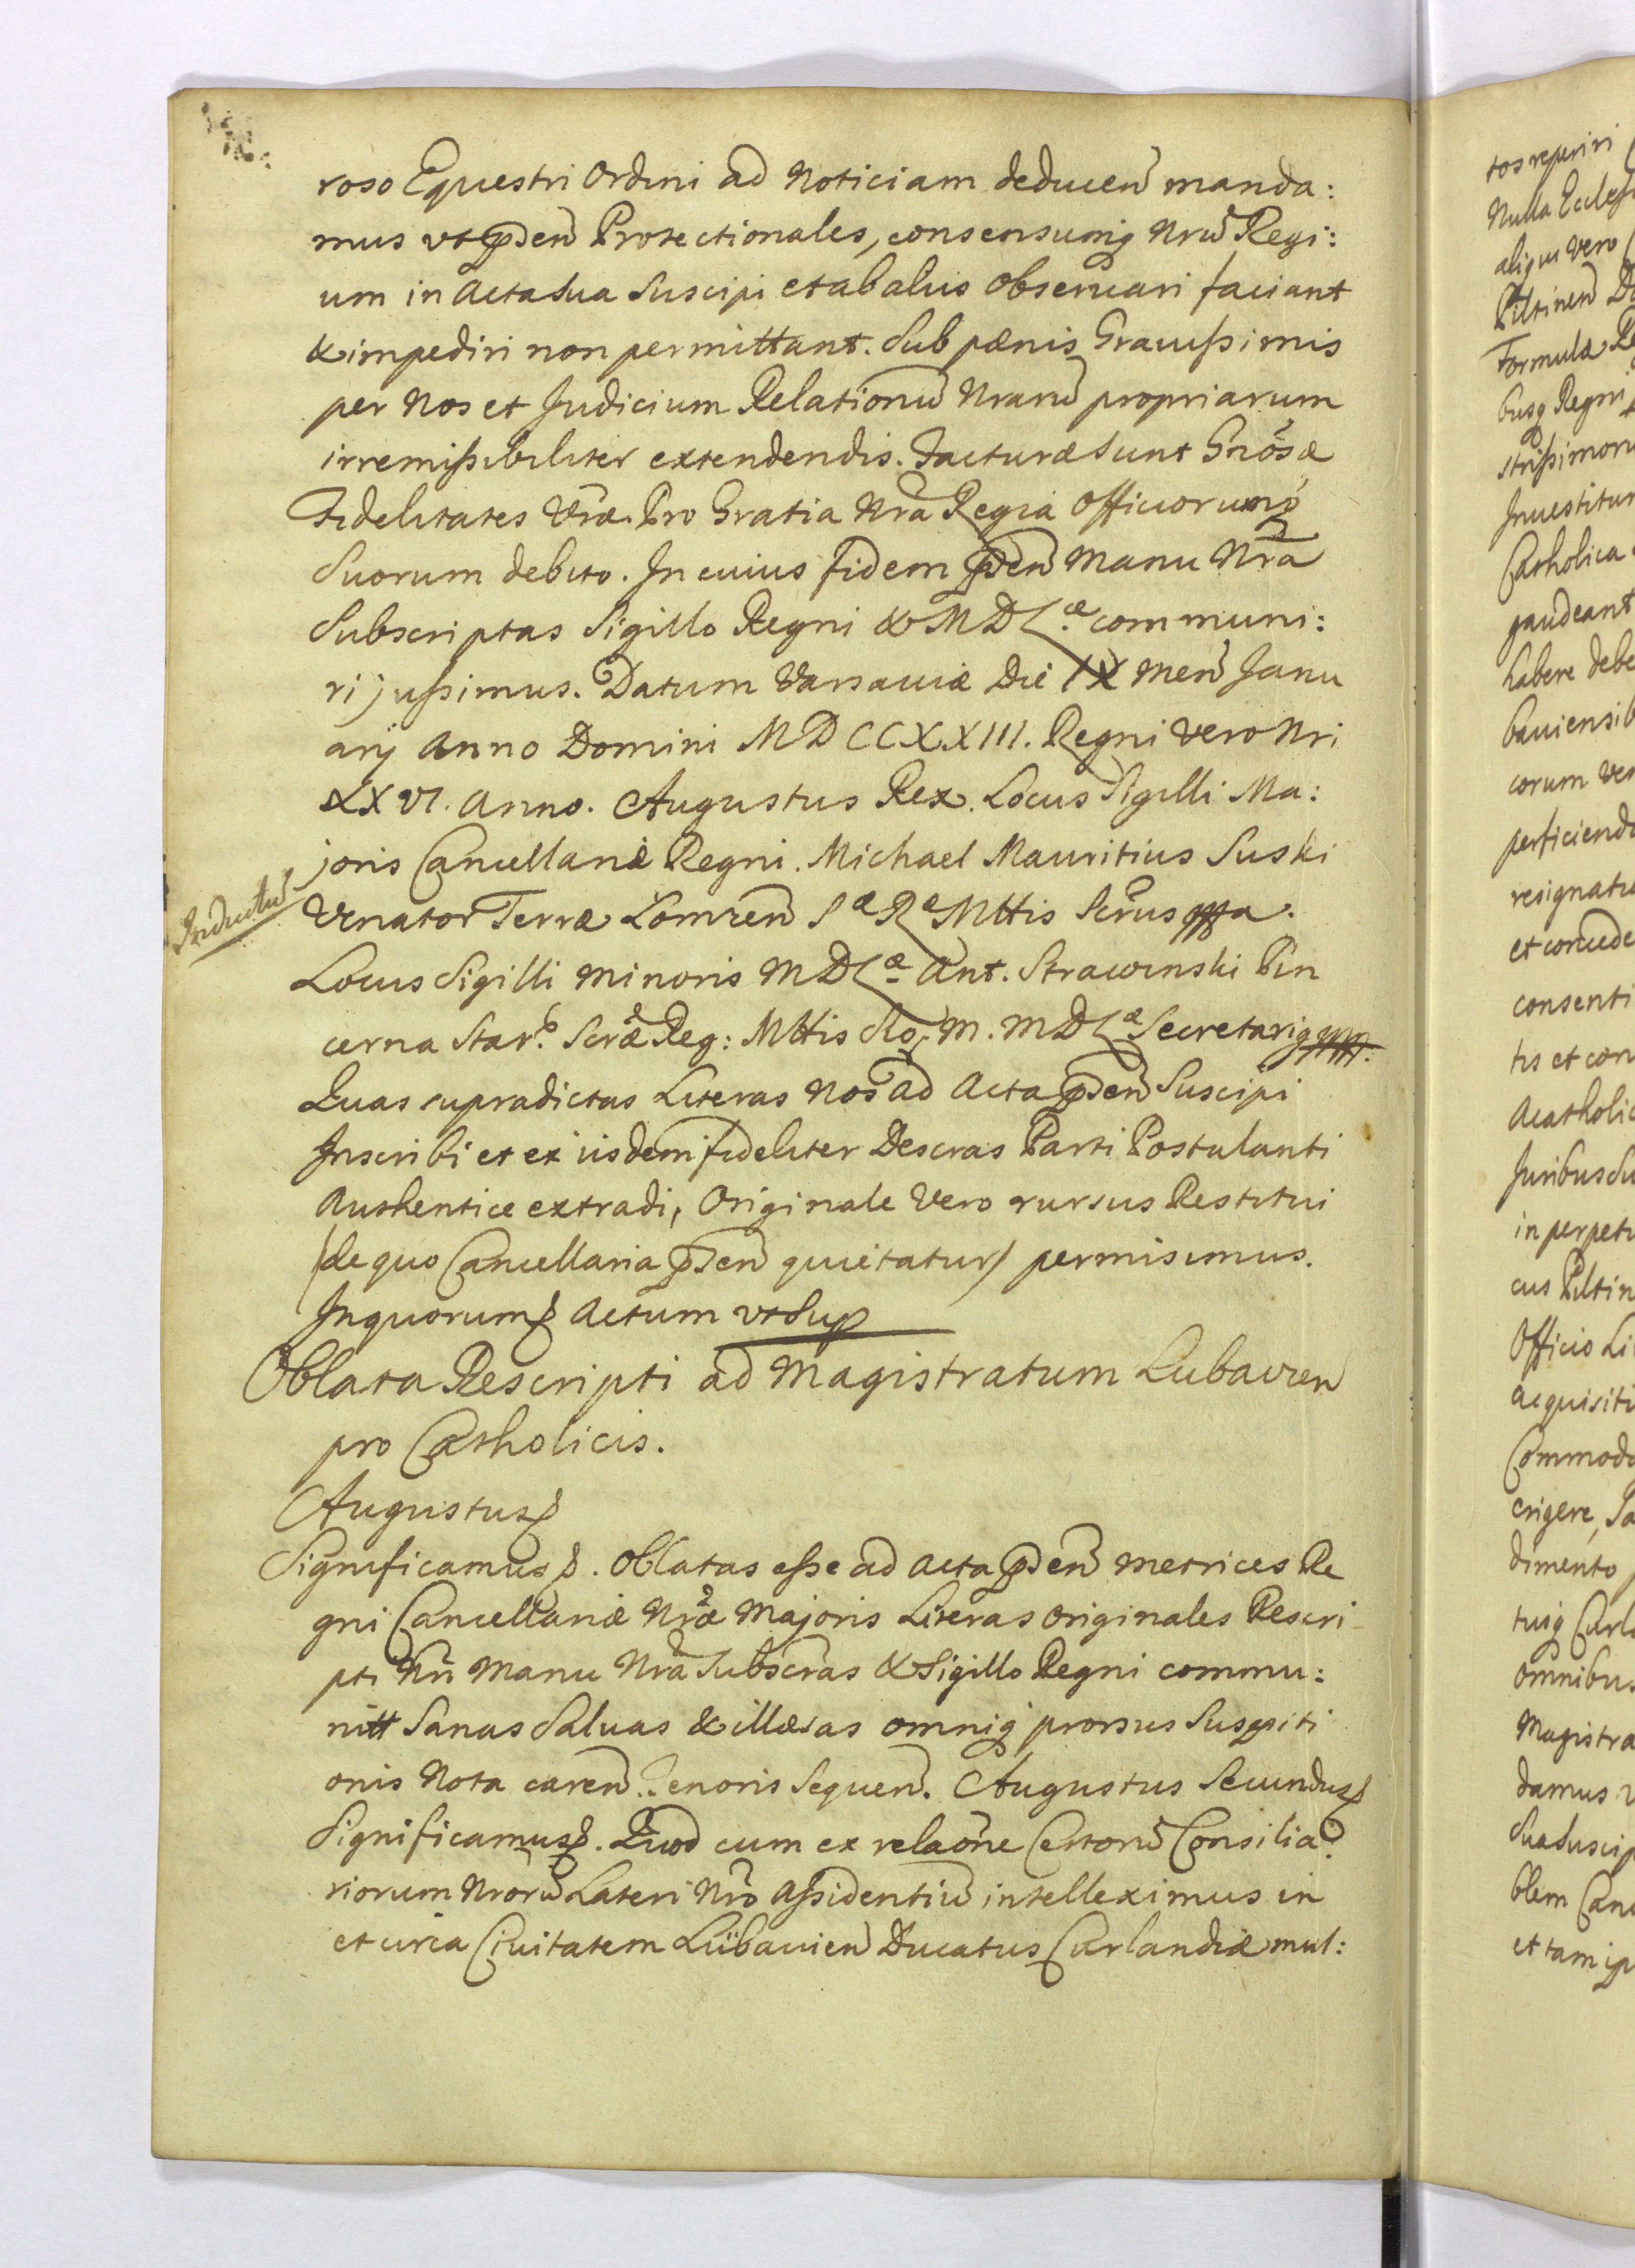 roso Equestri Ordini ad Noticiam deducen̄ manda:
mus vt pp̄sen̄ Protectionales, consensumq̨ Nrū Regi:
um in Acta sua Suscipi et ab aliis observari faciant
& impediri non permittant. Sub pænis Grauissimis
per Nos et Judicium Relationū Nrarū propriarum
irremissibiliter extendendis. Facturæ sunt Gnōsæ
Fidelitates Vr̄æ. Pro Gratia Nrā Regia Officiorumq̨
Suorum debito. In cuius fidem pp̄sen̄ Manu Nrā
Subscriptas Sigillo Regni & M D L æ communi:
ri jussimus. Datum Varsaviæ Die IX Men̄ Janu
arij Anno Domini MDCCXXIII. Regni Vero Nri
XXVI. Anno. Augustus Rex. Locus Sigilli Ma:
joris Cancellariæ Regni. Michael Mauritius Suski
Inductū
Venator Terræ Lomzen̄ S æ R æ Mttis Scr̄ius
Locus Sigilli Minoris M D L æ Ant. Strawinski Pin
cerna Star. Scræ Reg: Mttis M. M D L æ Secretariq̨
Quas supradictas Literas Nos ad Acta pp̄sen̄ Suscipi
Inscribi et ex iisdem fideliter Descras Parti Postulanti
Authentice extradi, Originale Vero rursus Restitui
/de quo Cancellaria pp̄sen̄ quietatur/ permisimus.
In quorum Actum vt Sup
Oblata Rescripti ad Magistratum Lubavien
pro Catholicis.
Augustus
Significamus. Oblatas esse ad Acta pp̄sen̄ Metrices Re
gni Cancellariæ Nr̄æ Majoris Literas Originales Rescri
pti Nri Manu Nrā Subscr̄as & Sigillo Regni commu:
nitt Sanas Saluas & illæsas omniq̨ prorsus Suspiti
onis Nota caren̄. Tenoris Sequen̄. Augustus Secundus
Significamus. Quod cum ex relaōne Certorū Consilia:
riorum Nrorū Lateri Nrō Assidentiū intelleximus in
et circa Ciuitatem Lübauien̄ Ducatus Curlandiæ mul:
tos reperiri
Nulla Eccles
aliqui vero
Piltinen̄
Formulæ
busq̨ Regni
strissimoru
Investitur
Catholica
gaudeant
habere debe
baviensib
corum
perficienda
resignat
et concede
consenti
tis et con
Acatholic
Juribus Su
in perpetu
cus Piltin
Officio Li
acquisiti
Commoda
erigere,
dimento
tuiq̨ Curl
omnibus
Magistra
damus
Sua suscip
blem Can
et tam ip